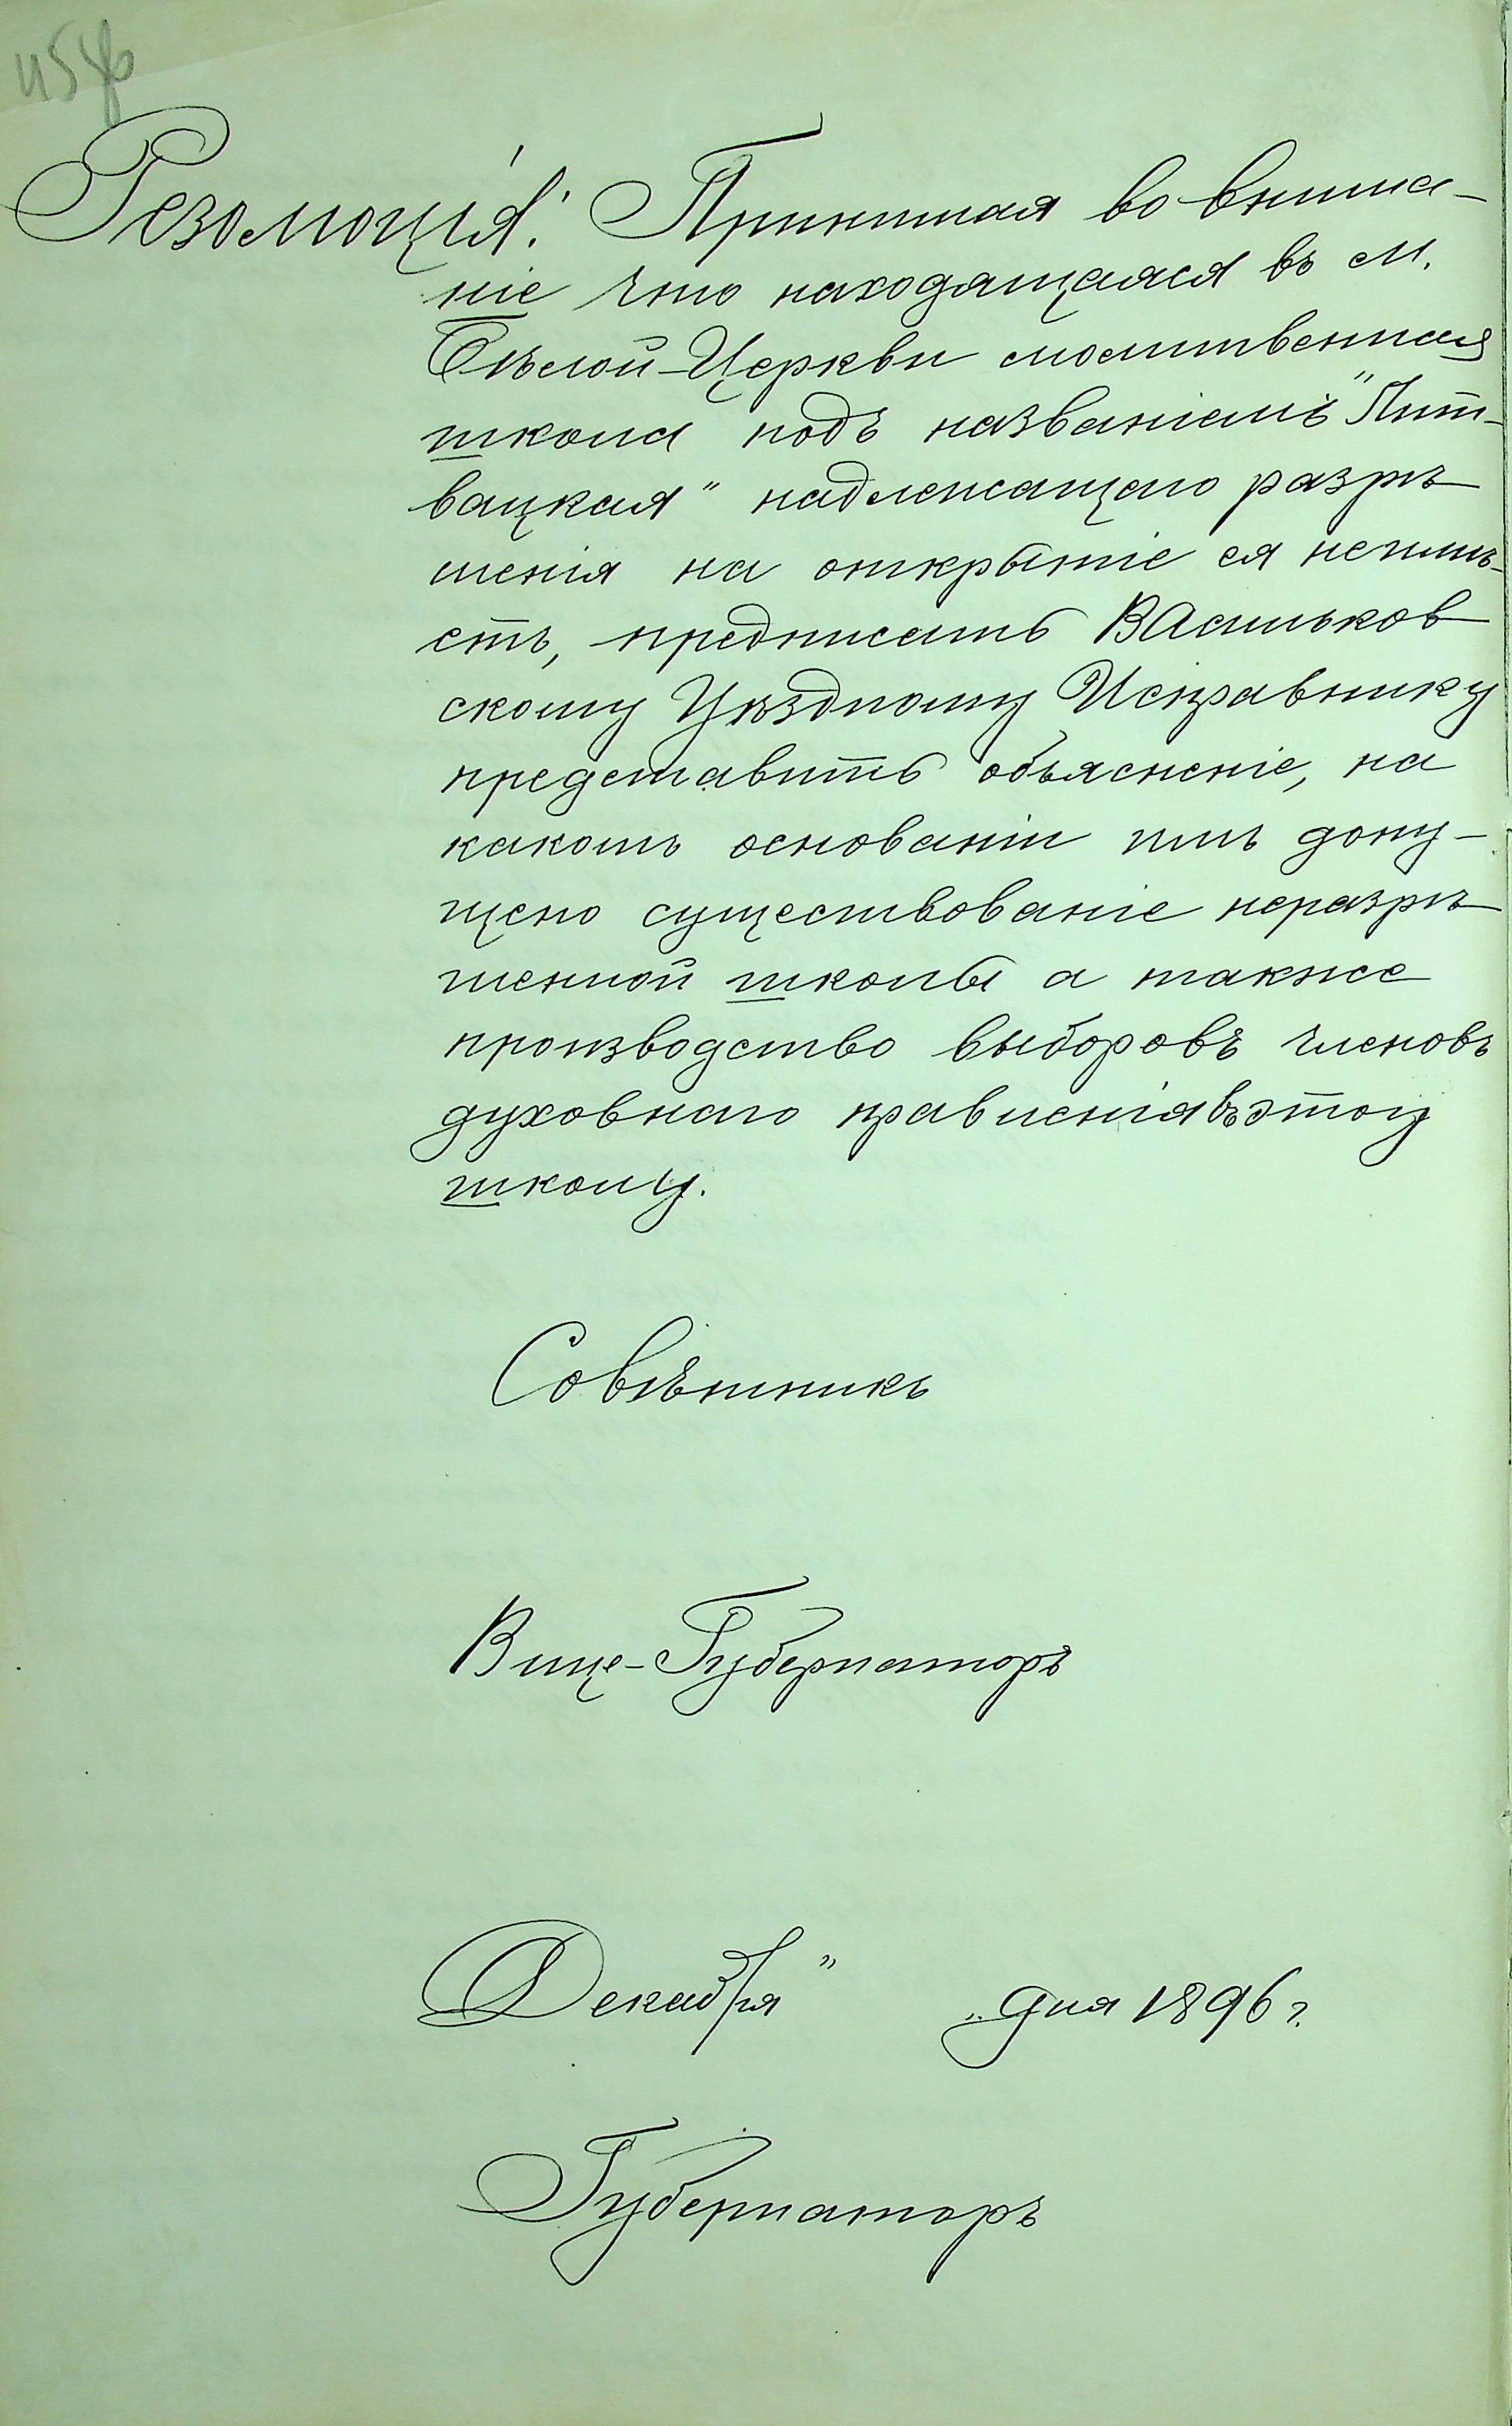 Резолюція: Принимая во внима-
ніе что находящаяся въ м.
Бѣлой-Церкви молитвенная
школа подъ названіемъ "Лит-
вацкая" надлежащаго разрѣ-
шенія на открытіе ея неимѣ-
етъ, предписать Васильков-
скому Уѣздному Исправнику
представить объясненіе, на
какомъ основаніи имъ допу-
щено существованіе неразрѣ-
шенной школы а также
производство выборовъ членовъ
духовнаго правленія въ этой
школу.
Совѣтникъ
Вице-Губернаторъ
Декабря " " дня 1896 г.
Губернаторъ